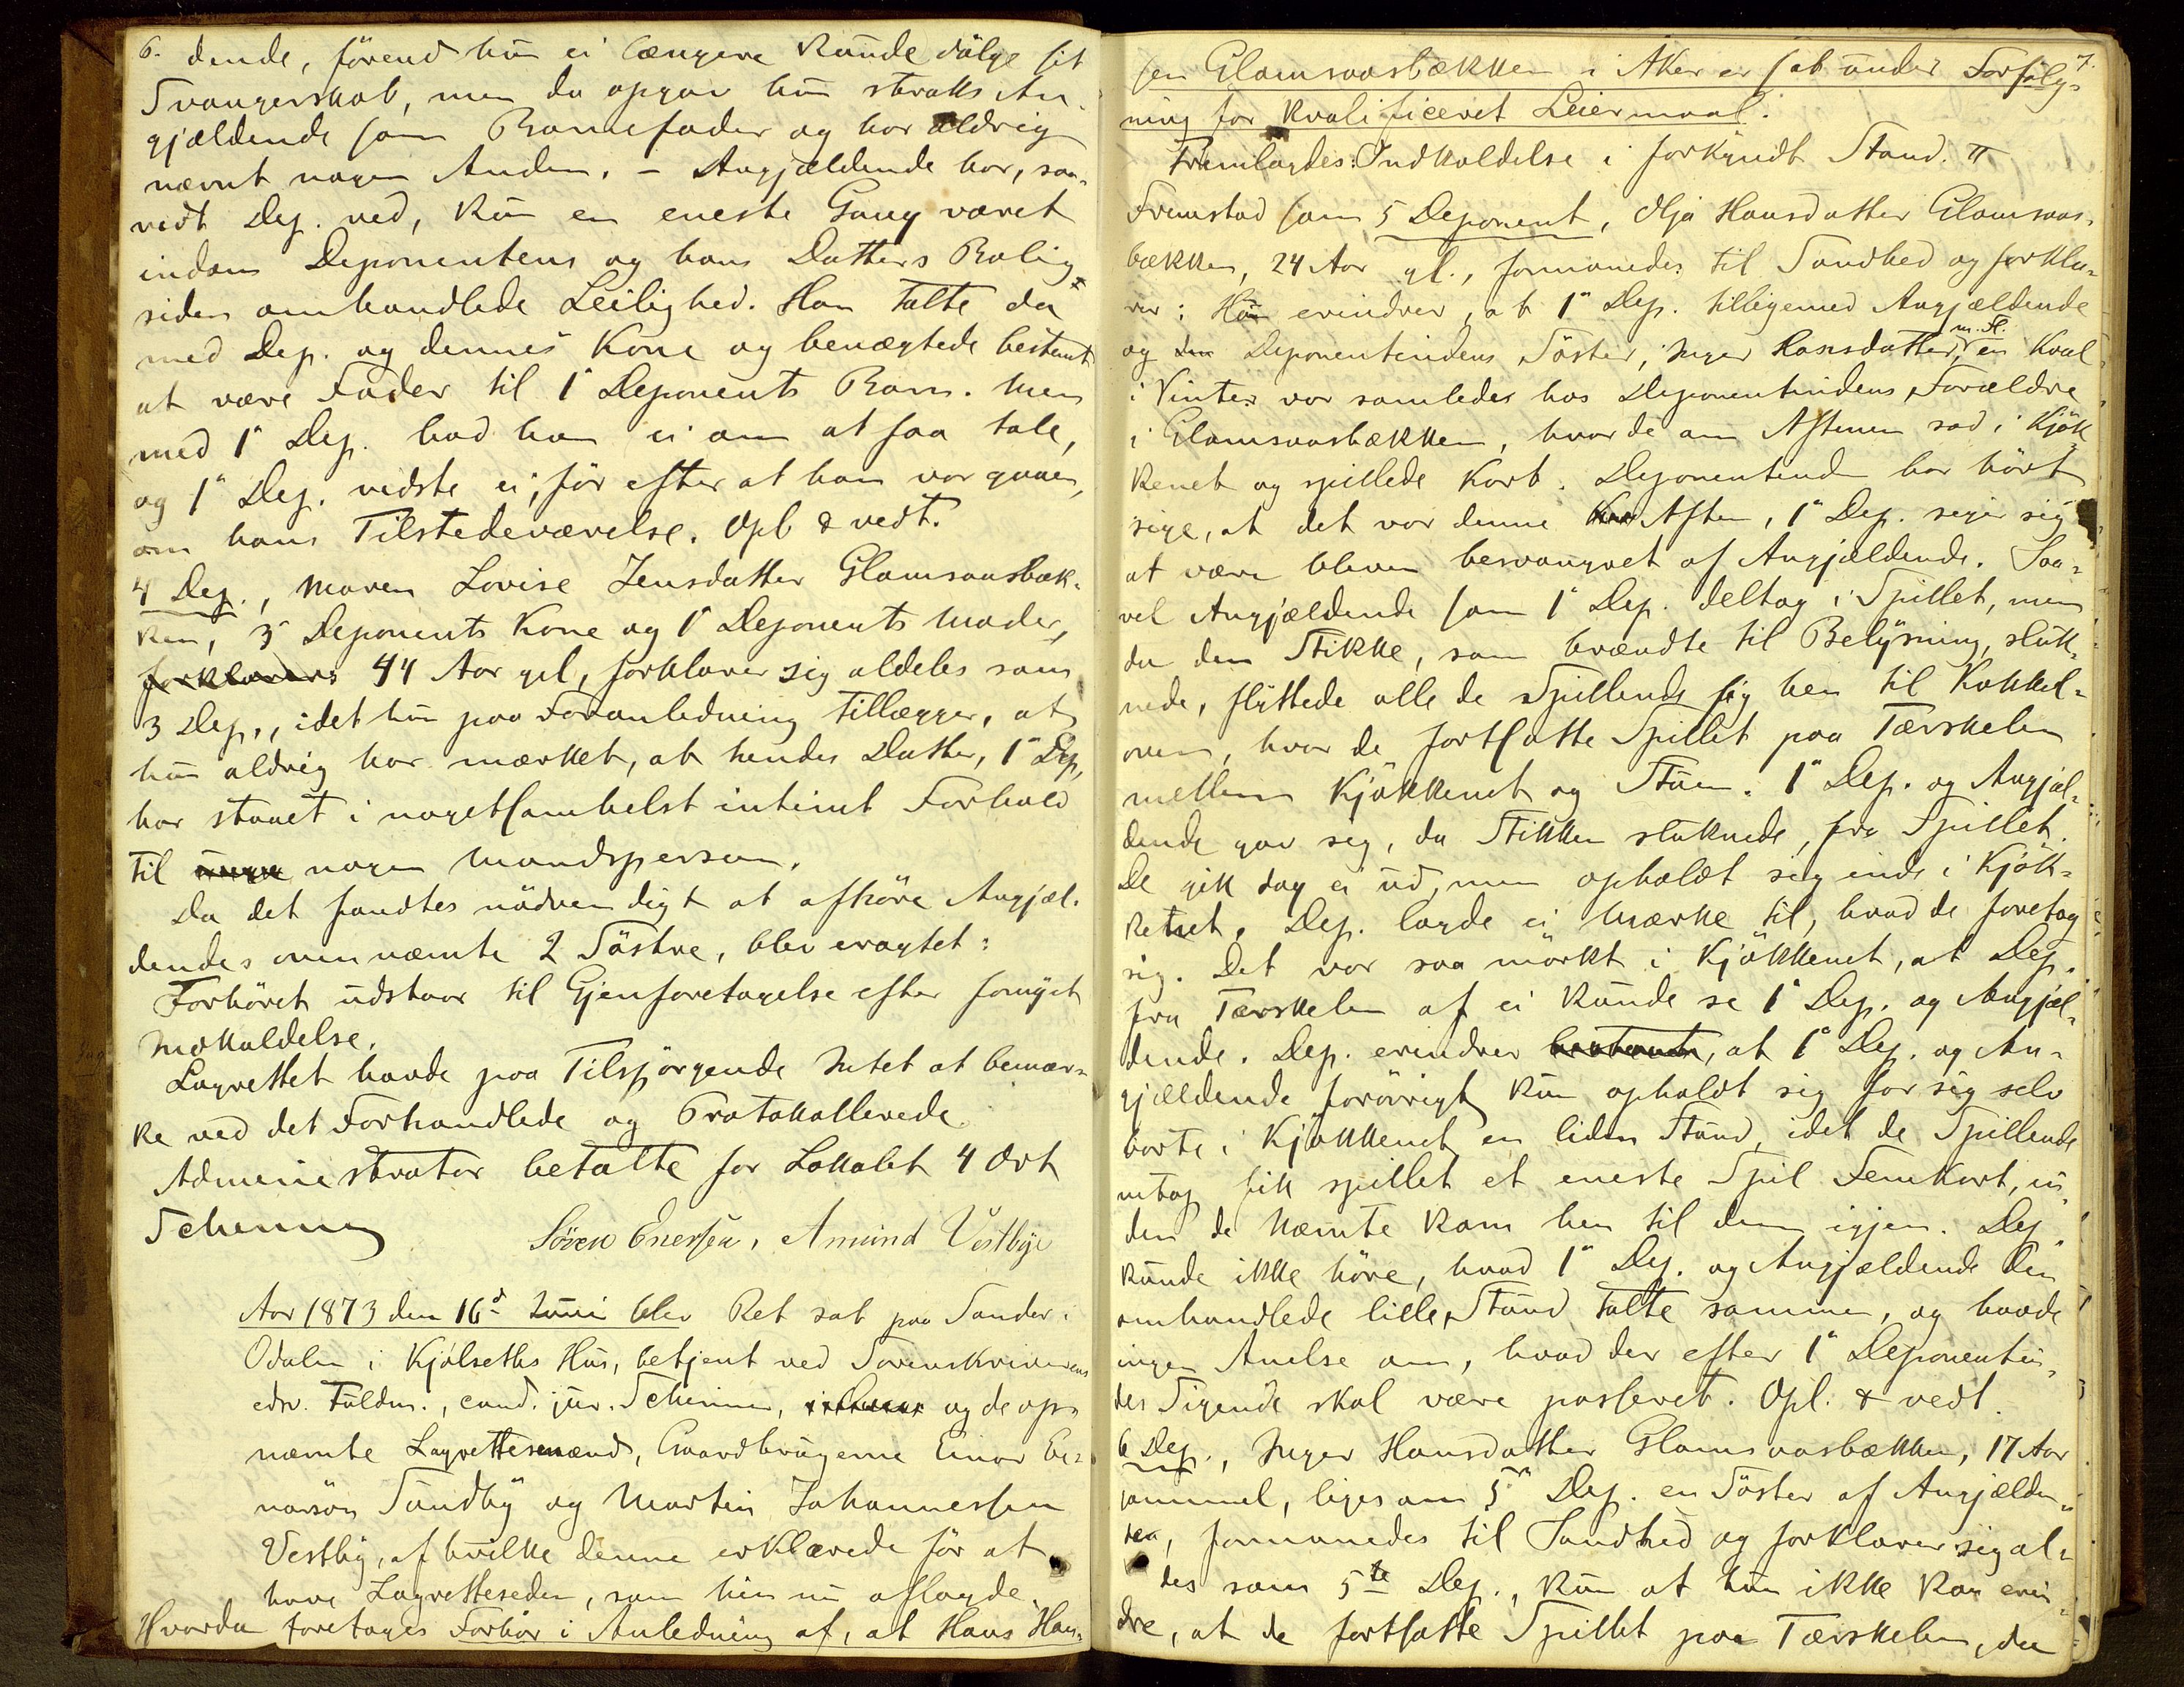 6.
dende, förend hun ei længere kunde dölge sit
Svangerskab, men da opgav hun straks An-
gjældende som Barnefader og har aldrig
nævnt nogen Anden. – Angjældende har, saa-
vidt Dep. ved, kun en eneste Gang været
indom Deponentens og hans Datters Bolig
siden omhandlede Leilighed. Han talte da
med Dep. og dennes Kone og benægtede bestemt
at være Fader til 1ª Deponents Barn. Men
med 1ª Dep. bad han ei om at faa tale,
og 1ª Dep. vidste ei, för efter at han var gaaen,
om hans Tilstedeværelse. Opl & vedt.
4 Dep., Maren Lovise Jensdatter Glamsaasbæk-
ken, 3ª Deponents Kone og 1ª Deponents Moder,
forklarer 44 Aar gl, forklarer sig aldeles som
3 Dep., idet hun paa Foranledning tillægger, at
hun aldrig har mærket, at hendes Datter, 1ª Dep,
har staaet i nogetsomhelst intimt Forhold
til nogen Mandsperson.
Da det fandtes nödvendigt at afhöre Angjæl-
dendes ovennævnte 2 Söstre, blev eragtet:
Forhöret udstaar til Gjenforetagelse efter fornyet
Indkaldelse.
Lagrettet havde paa Tilspörgende Intet at bemær-
ke ved det Forhandlede og Protokollerede.
Administrator betalte for Lokalet 4 Ort
Schenning Sören Enersen, Amund Vestbye
Aar 1873 den 16d Juni blev Ret sat paa Sander i
Odalen i Kjölseths Hus, betjent ved Sorenskriverens
edsv. Fuldm., cand. jur. Schenning, og de op-
nævnte Lagrettesmænd, Gaardbrugerne Einar Ei-
narsön Sundby og Martin Johannessen
Vestby, af hvilke denne erklærede för at
have Lagretteseden, som hin nu aflagde.
Hvorda foretages Forhör i Anledning af, at Hans Han-
7.
sen Glamsaasbækken i Aker er sat under Forfølg-
ning for kvalificeret Leiermaal.
Fremlagdes: Indkaldelse i forkyndt Stand. π
Fremstod som 5 Deponent, Olja Hansdatter Glamsaas-
bækken, 24 Aar gl., formanedes til Sandhed og forkla-
rer: Hun erindrer, at 1ª Dep. tilligemed Angjældende
og den Deponentindens Söster, Inger Hansdatter, m. Fl. en Kvel
i Vinter var samledes hos Deponentindens Forældre
i Glamsaasbækken, hvor de om Aftenen sad i Kjök-
kenet og spillede Kort. Deponentinden har hört
sige, at det var denne Aften, 1ª Dep. siger sig
at være bleven besvangret af Angjældende. Saa-
vel Angjældende som 1ª Dep. deltog i Spillet, men
da den Stikke, som brændte til Belysning, sluk-
nede, flyttede alle de Spillende sig hen til Kakkel-
ovnen, hvor de fortsatte Spillet paa Tærskelen
mellem Kjökkenet og Stuen. 1ª Dep. og Angjæl-
dende gav sig, da Stikken sluknede, fra Spillet.
De gik dog ei ud, men opholdt sig inde i Kjök-
kenet. Dep. lagde ei Mærke til, hvad de foretog
sig. Det var saa mörkt i Kjökkenet, at Dep.
fra Tærskelen af ei kunde se 1ª Dep. og Angjæl-
dende. Dep. erindrer bestemt, at 1ª Dep. og An-
gjældende forövrigt kun opholdt sig for sig selv
borte i Kjökkenet en liden Stund, idet de Spillende
netop fik spillet et eneste Spil Femkort, in-
den de Nævnte kom hen til dem igjen. Dep.
kunde ikke höre, hvad 1ª Dep. og Angjældende den
omhandlede lille Stund talte sammen, og havde
ingen Anelse om, hvad der efter 1ª Deponentin-
des Sigende skal være passeret. Opl. & vedt.
6 Dep., Inger Hansdatter Glamsaasbækken, 17 Aar
gammel, ligesom 5ª Dep. en Söster af Angjælden-
de, formanedes til Sandhed og forklarer sig al-
des som 5te Dep., kun at hun ikke kan erin-
dre, at de fortsatte Spillet paa Tærskelen, da